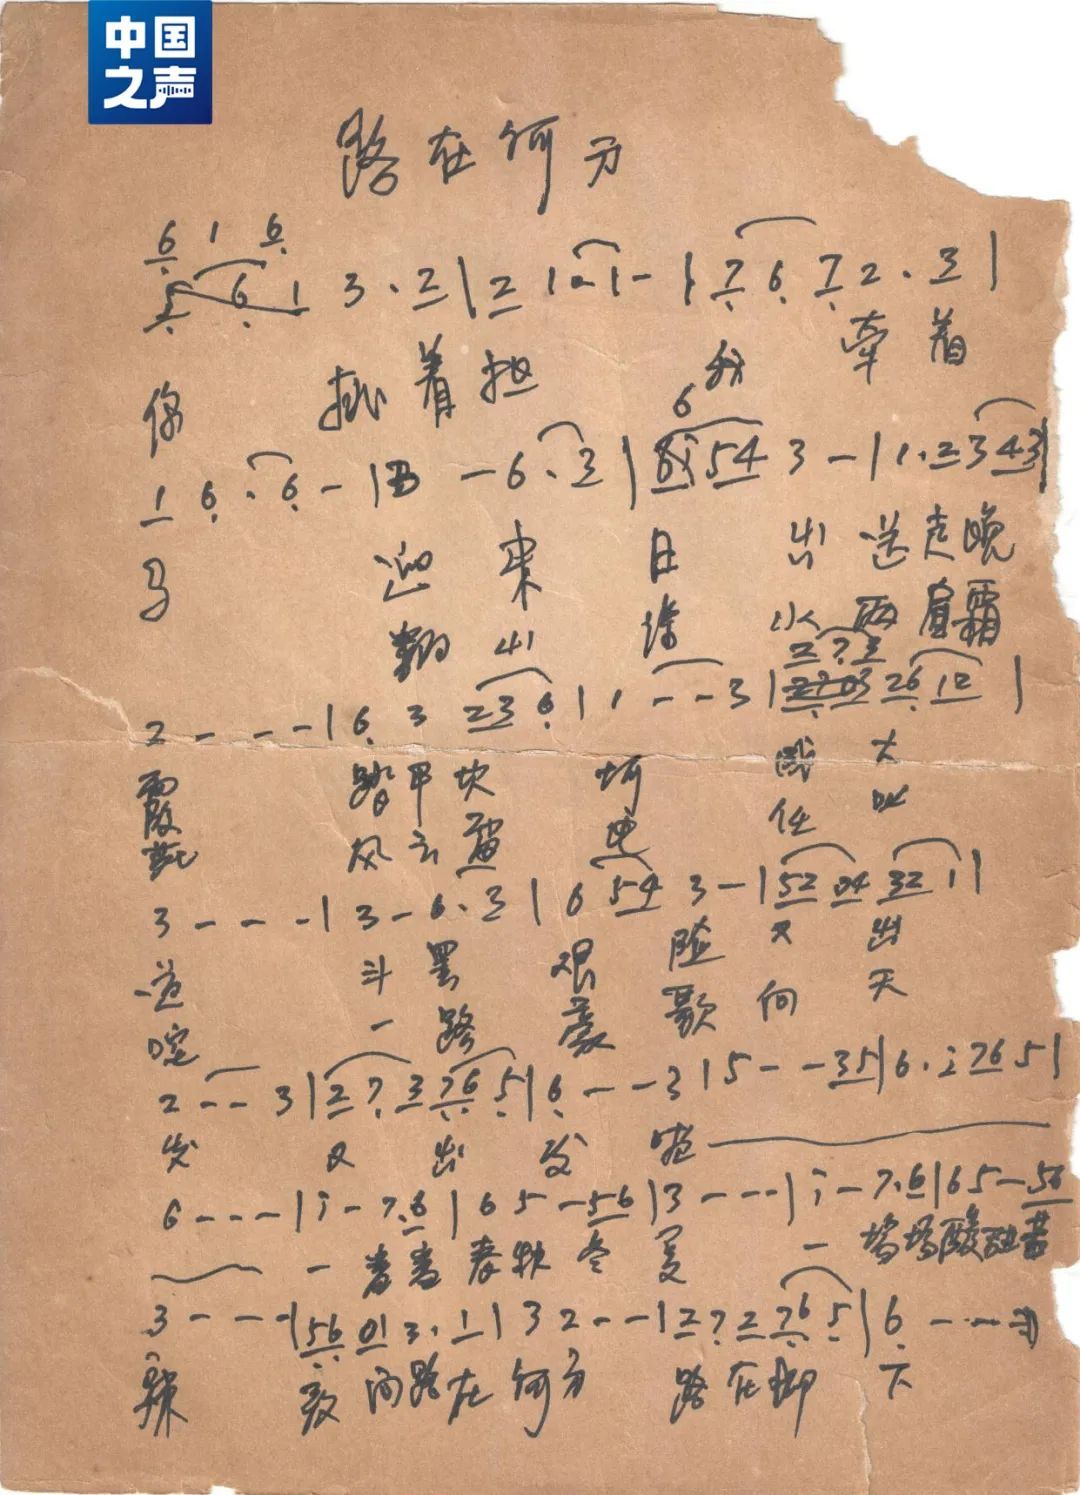 中国
之声
路在何方
6 1 6
5 6 1 3 . 2 | 2 1 . 1 - | 7 6 7 2 . 3 |
你 挑着担 我 牵着
6
1 6 . 6 - | 3 - 6 . 3 | i 5 4 3 - | 1 . 2 3 4 3 |
马 迎来日出送走晚
翻山涉水两肩霜
2 7 3
2 - - - | 6 3 2 3 6 | 1 - - 3 | 2 6 1 2 |
霞 踏平坎坷 成大
花 风云雷电 任叱
3 - - - | 3 - 6 . 3 | 6 5 4 3 - | 5 2 0 4 3 2 1 |
道 斗罢艰险又出
咤 一路豪歌向天
2 - - 3 | 2 7 . 3 7 6 5 | 6 - - - 3 | 5 - - 3 5 | 6 . i 7 6 5 |
发 又出发 啦
6 - - - | i - 7 . 6 | 6 5 - 5 6 | 3 - - - | i - 7 . 6 | 6 5 - 5 6
一番番春秋冬夏 一场场酸甜苦
3 - - - | 5 6 0 1 3 . 1 | 3 2 - - | 2 7 2 7 6 5 | 6 - - -
辣 敢问路在何方 路在脚下